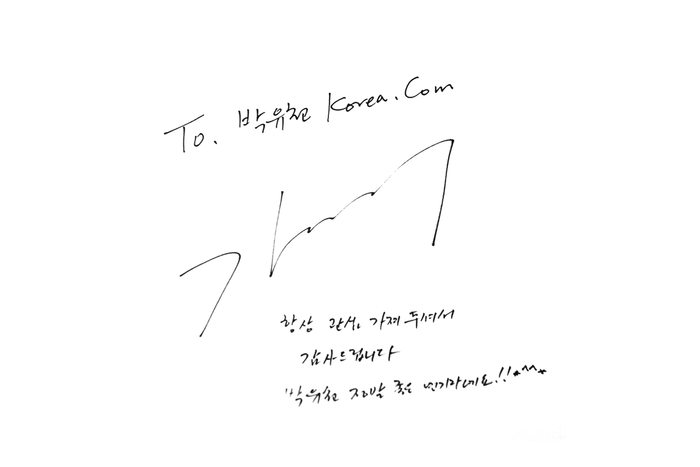 To. 박유천 Korea.Com
항상 관심 가져 주셔서
감사드립니다
박유천 정말 좋은 연기자네요!! *^^*